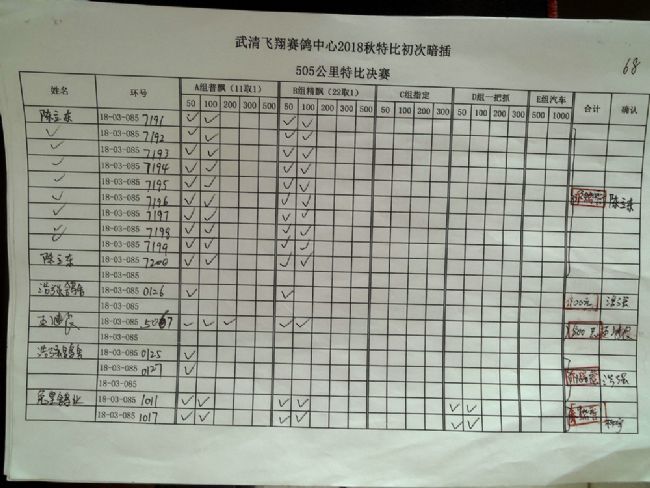 武清飞翔赛鸽中心2018秋特比初次暗插
505公里特比决赛
68
姓名 环号 A组普飘（11取1） B组精飘（22取1） C组指定 D组一把抓 E组汽车 合计 确认
50 100 200 300 500 50 100 200 300 500 100 200 300 500 50 100 200 300 500 1000
陈立东 18-03-085 7191 ✓ ✓ ✓ ✓
✓ 18-03-085 7192 ✓ ✓ ✓ ✓
✓ 18-03-085 7193 ✓ ✓ ✓ ✓
✓ 18-03-085 7194 ✓ ✓ ✓ ✓
✓ 18-03-085 7195 ✓ ✓ ✓ ✓
✓ 18-03-085 7196 ✓ ✓ ✓ ✓ 陈立东
✓ 18-03-085 7197 ✓ ✓ ✓ ✓
✓ 18-03-085 7198 ✓ ✓ ✓ ✓
✓ 18-03-085 7199 ✓ ✓ ✓ ✓
陈立东 18-03-085 7200 ✓ ✓ ✓ ✓
18-03-085
浩强鸽舍 18-03-085 0126 ✓ ✓
18-03-085 100元 浩强
18-03-085 ✓ ✓ ✓ ✓ ✓
18-03-085
浩强鸽舍 18-03-085 0125 ✓
18-03-085 0127 ✓
18-03-085 浩强
鸽业 18-03-085 1011 ✓ ✓ ✓ ✓ ✓ ✓
18-03-085 1017 ✓ ✓ ✓ ✓ ✓ ✓